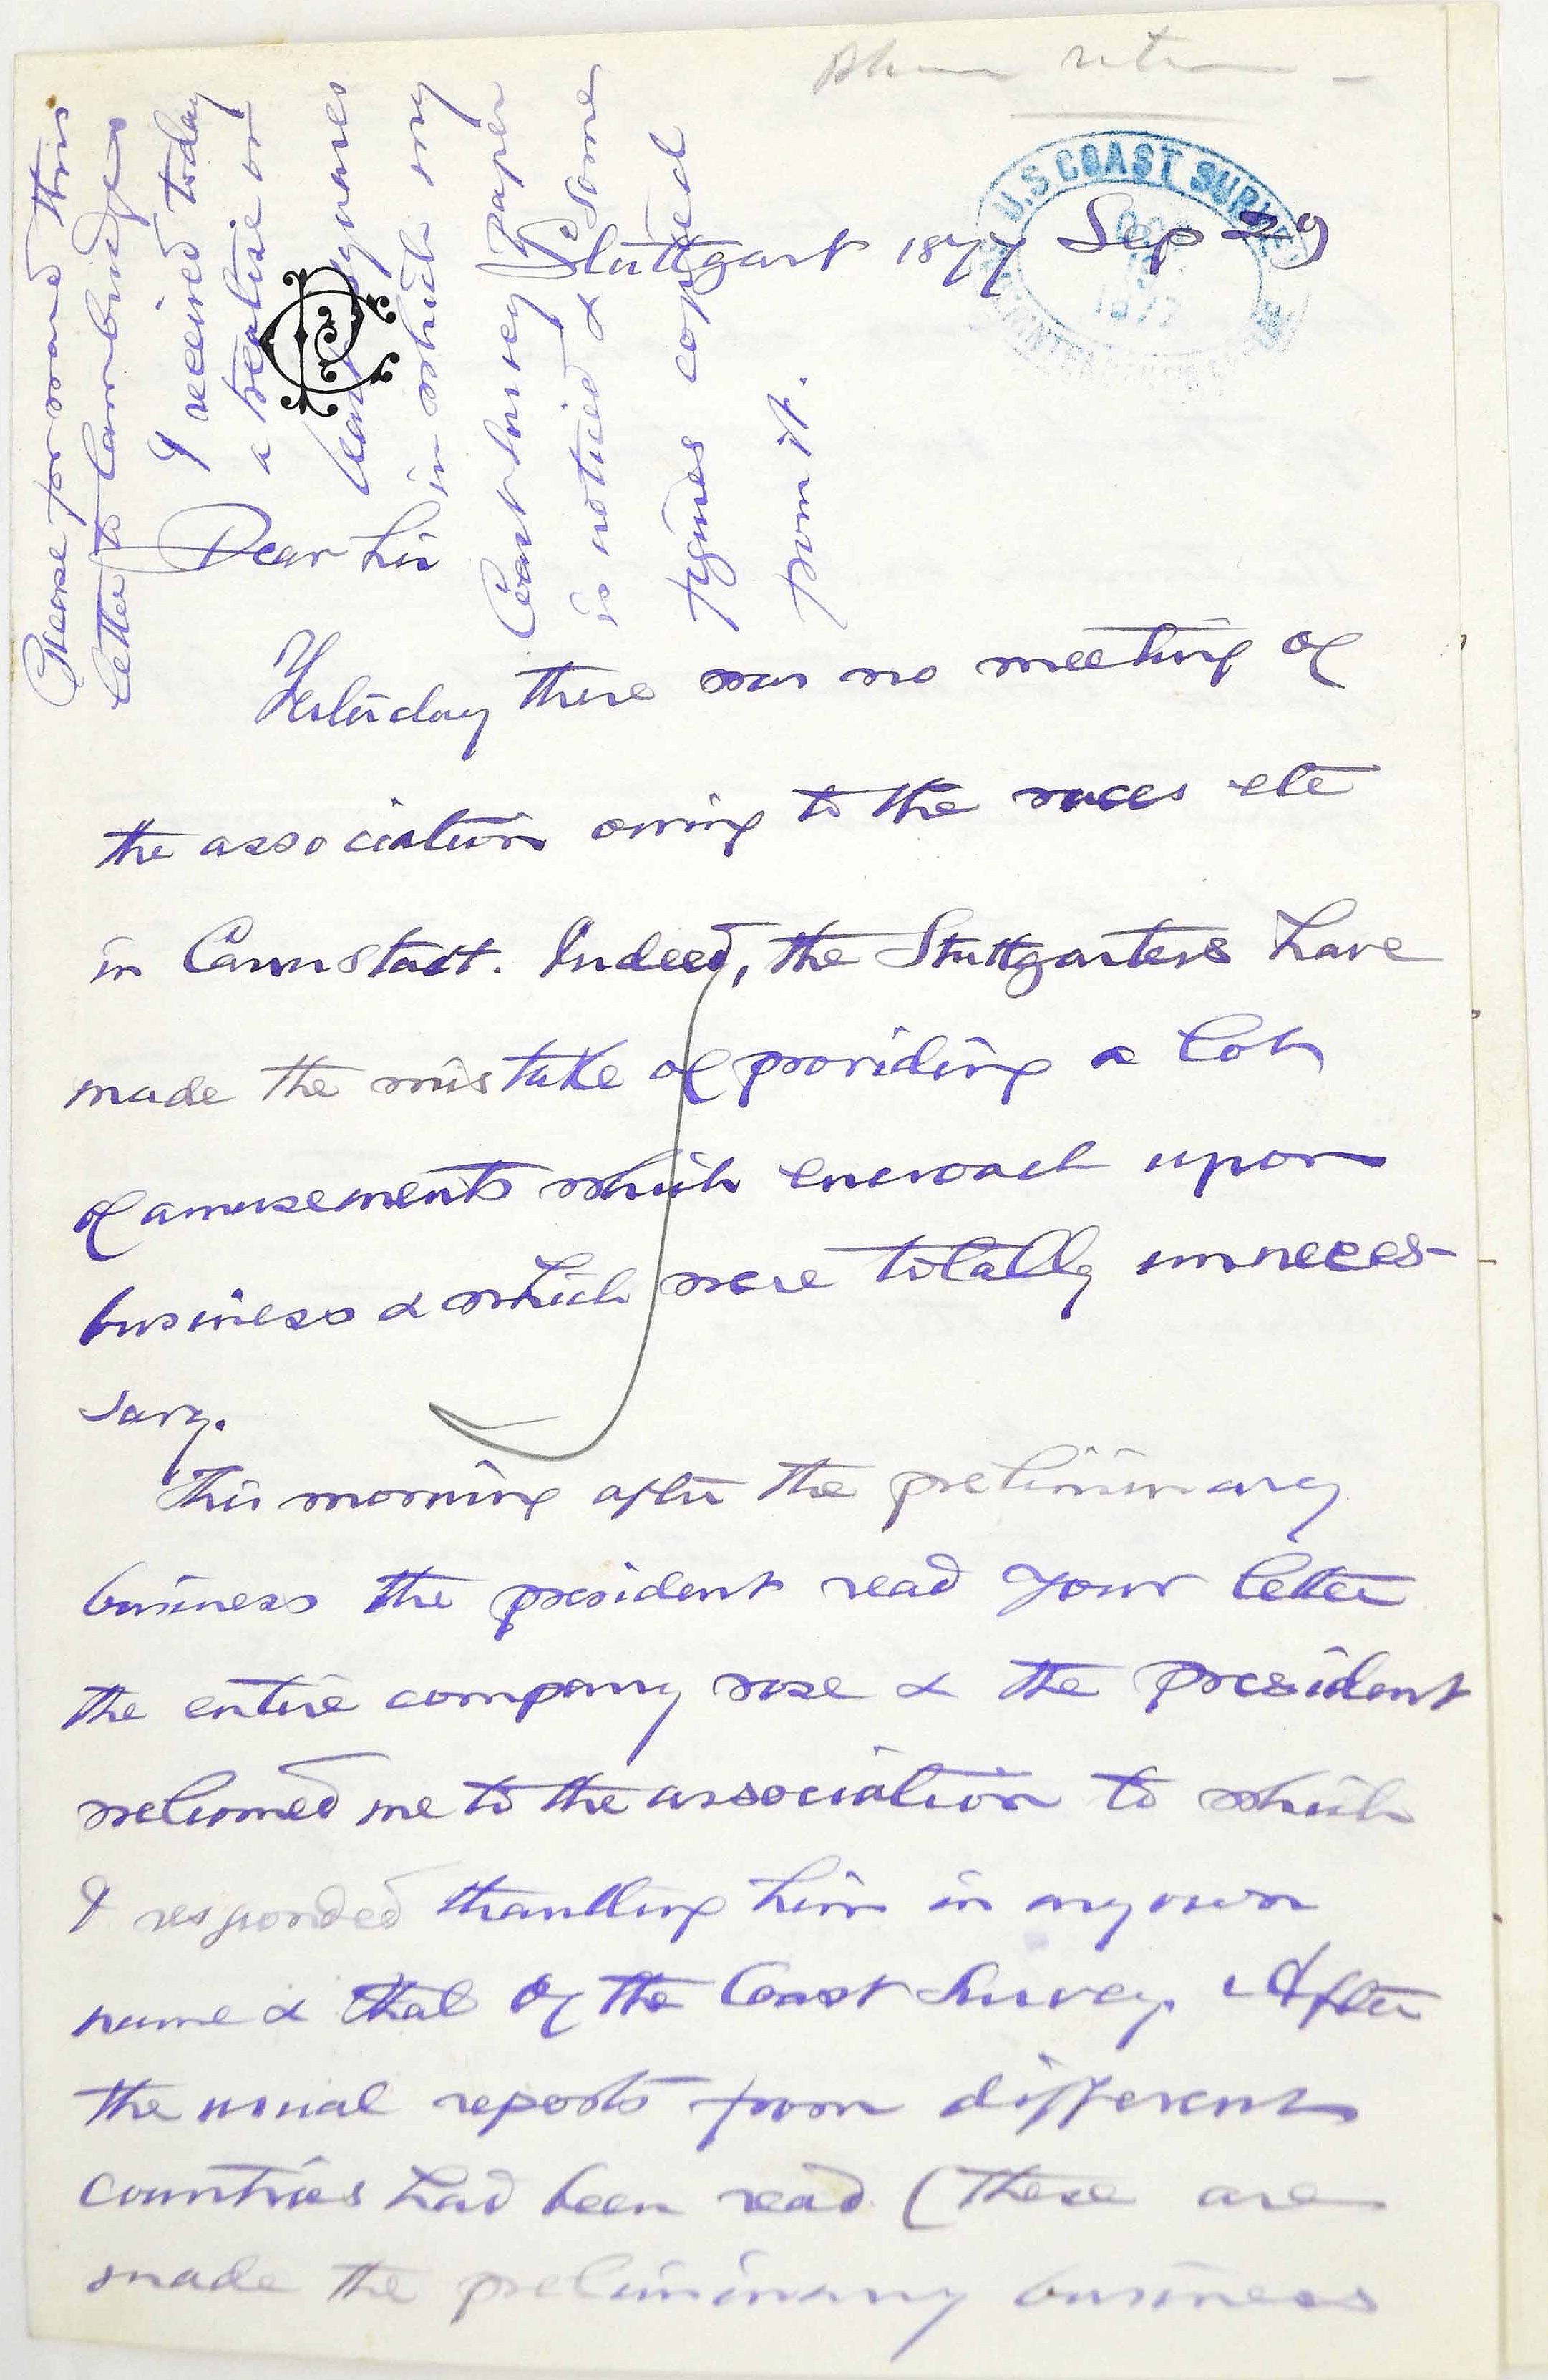 Please forward this
letter to Cambridge
I received today
a treatise on
least squares
in which my
Coast Survey paper
is noticed & some
figures copied
from it.
U.S COAST SURVEY
OCT
1877
Stuttgart 1877 Sep 29
Dear Sir
Yesterday there was no meeting of
the association owing to the races etc
in Cannstadt. Indeed, the Stuttgarters have
made the mistake of providing a lot
of amusements which encroach upon
business & which were totally unneces-
sary.
This morning after the preliminary
business the president read your letter
the entire company rose & the president
welcomed me to the association to which
I responded thanking him in my own
name & that of the Coast Survey. After
the usual reports from different
countries had been read (these are
made the preliminary business